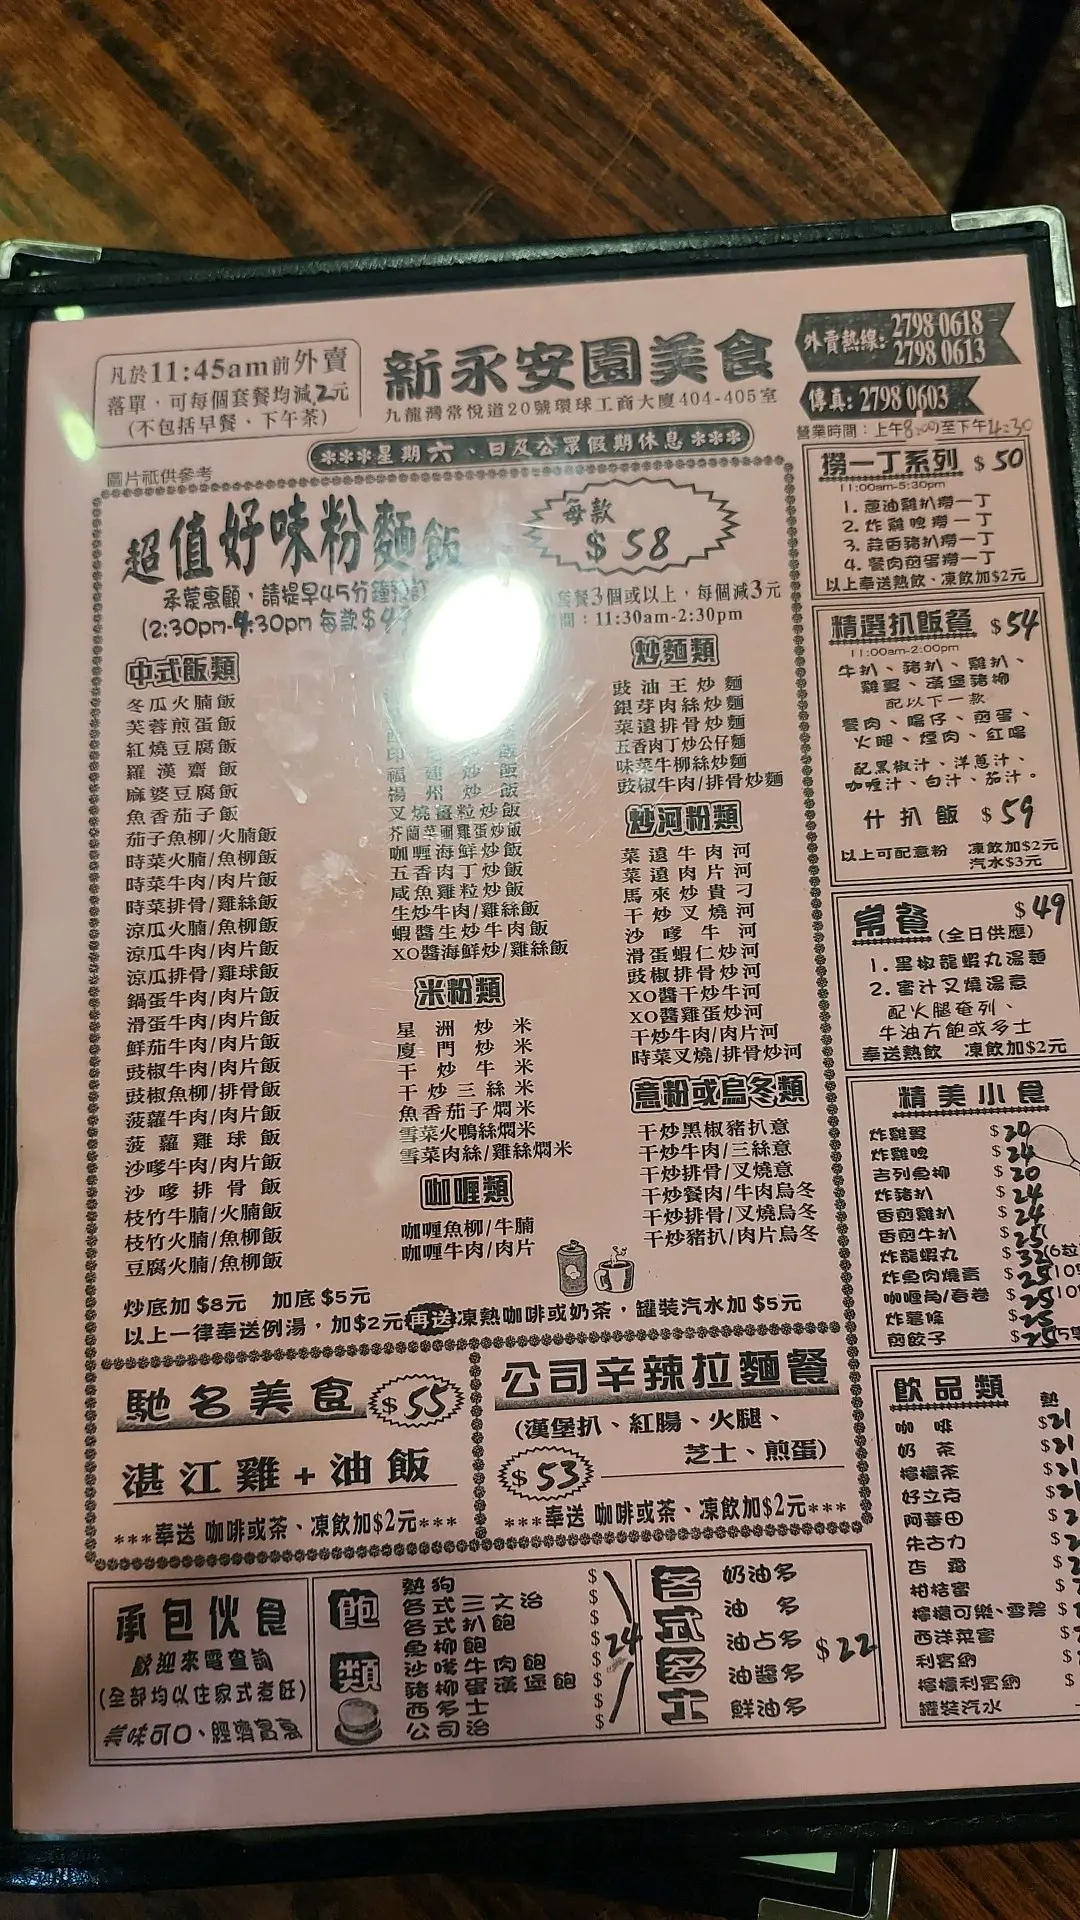 凡於11:45am前外賣
落單，可每個套餐均減2元
(不包括早餐、下午茶)
新永安園美食
九龍灣常悅道20號環球工商大廈404-405室
***星期六、日及公眾假期休息***
外賣熱線: 2798 0618
2798 0613
傳真: 2798 0603
營業時間：上午8:00至下午4:30
圖片祗供參考
超值好味粉麵飯
每款
$58
承蒙惠顧，請提早45分鐘預訂
(2:30pm-4:30pm 每款$4
套餐3個或以上，每個減3元
間：11:30am-2:30pm
中式飯類
冬瓜火腩飯
芙蓉煎蛋飯
紅燒豆腐飯
羅漢齋飯
麻婆豆腐飯
魚香茄子飯
茄子魚柳/火腩飯
時菜火腩/魚柳飯
時菜牛肉/肉片飯
時菜排骨/雞絲飯
涼瓜火腩/魚柳飯
涼瓜牛肉/肉片飯
涼瓜排骨/雞球飯
鍋蛋牛肉/肉片飯
滑蛋牛肉/肉片飯
鮮茄牛肉/肉片飯
豉椒牛肉/肉片飯
豉椒魚柳/排骨飯
菠蘿牛肉/肉片飯
菠蘿雞球飯
沙嗲牛肉/肉片飯
沙嗲排骨飯
枝竹牛腩/火腩飯
枝竹火腩/魚柳飯
豆腐火腩/魚柳飯
飯
印 飯
福建炒飯
揚州炒飯
叉燒薑粒炒飯
芥蘭菜圃雞蛋炒飯
咖喱海鮮炒飯
五香肉丁炒飯
咸魚雞粒炒飯
生炒牛肉/雞絲飯
蝦醬生炒牛肉飯
XO醬海鮮炒/雞絲飯
米粉類
星洲炒米
廈門炒米
干炒牛米
干炒三絲米
魚香茄子燜米
雪菜火鴨絲燜米
雪菜肉絲/雞絲燜米
咖喱類
咖喱魚柳/牛腩
咖喱牛肉/肉片
炒麵類
豉油王炒麵
銀芽肉絲炒麵
菜遠排骨炒麵
五香肉丁炒公仔麵
味菜牛柳絲炒麵
豉椒牛肉/排骨炒麵
炒河粉類
菜遠牛肉河
菜遠肉片河
馬來炒貴刁
干炒叉燒河
沙嗲牛河
滑蛋蝦仁炒河
豉椒排骨炒河
XO醬干炒牛河
XO醬雞蛋炒河
干炒牛肉/肉片河
時菜叉燒/排骨炒河
意粉或烏冬類
干炒黑椒豬扒意
干炒牛肉/三絲意
干炒排骨/叉燒意
干炒餐肉/牛肉烏冬
干炒排骨/叉燒烏冬
干炒豬扒/肉片烏冬
炒底加 $8元 加底 $5元
以上一律奉送例湯，加$2元再送凍熱咖啡或奶茶，罐裝汽水加 $5元
馳名美食 $55
湛江雞+油飯
***奉送 咖啡或茶、凍飲加$2元***
公司辛辣拉麵餐
(漢堡扒、紅腸、火腿、
芝士、煎蛋)
$53
***奉送 咖啡或茶、凍飲加$2元***
承包伙食
歡迎來電查詢
(全部均以住家式煮飪)
美味可口、經濟實惠
飽類
熱狗 $
各式三文治 $
各式扒飽 $
魚柳飽 $24
沙嗲牛肉飽 $
豬柳蛋漢堡飽 $
西多士 $
公司治 $
各式多士
奶油多
油多
油占多 $22
油醬多
鮮油多
撈一丁系列 $50
11:00am-5:30pm
1. 蔥油雞扒撈一丁
2. 炸雞髀撈一丁
3. 蒜香豬扒撈一丁
4. 餐肉煎蛋撈一丁
以上奉送熱飲．凍飲加$2元
精選扒飯餐 $54
11:00am-2:00pm
牛扒、豬扒、雞扒、
雞翼、漢堡豬柳
配以下一款
餐肉、腸仔、煎蛋、
火腿、煙肉、紅腸
配黑椒汁、洋蔥汁、
咖喱汁、白汁、茄汁。
什扒飯 $59
以上可配意粉 凍飲加$2元
汽水$3元
常餐 (全日供應) $49
1. 黑椒龍蝦丸湯麵
2. 蜜汁叉燒湯意
配火腿奄列、
牛油方飽或多士
奉送熱飲 凍飲加$2元
精美小食
炸雞翼 $20
炸雞髀 $24
吉列魚柳 $20
炸豬扒 $24
香煎雞扒 $24
香煎牛扒 $25
炸龍蝦丸 $32(6粒
炸魚肉燒賣 $25(10
咖喱角/春卷 $25
炸薯條 $25
煎餃子 $25
飲品類 熱
咖啡 $21
奶茶 $21
檸檬茶 $21
好立克 $2
阿華田 $2
朱古力 $2
杏霜 $2
柑桔蜜 $
檸檬可樂、雪碧 $
西洋菜蜜 $
利賓納 $
檸檬利賓納 $
罐裝汽水